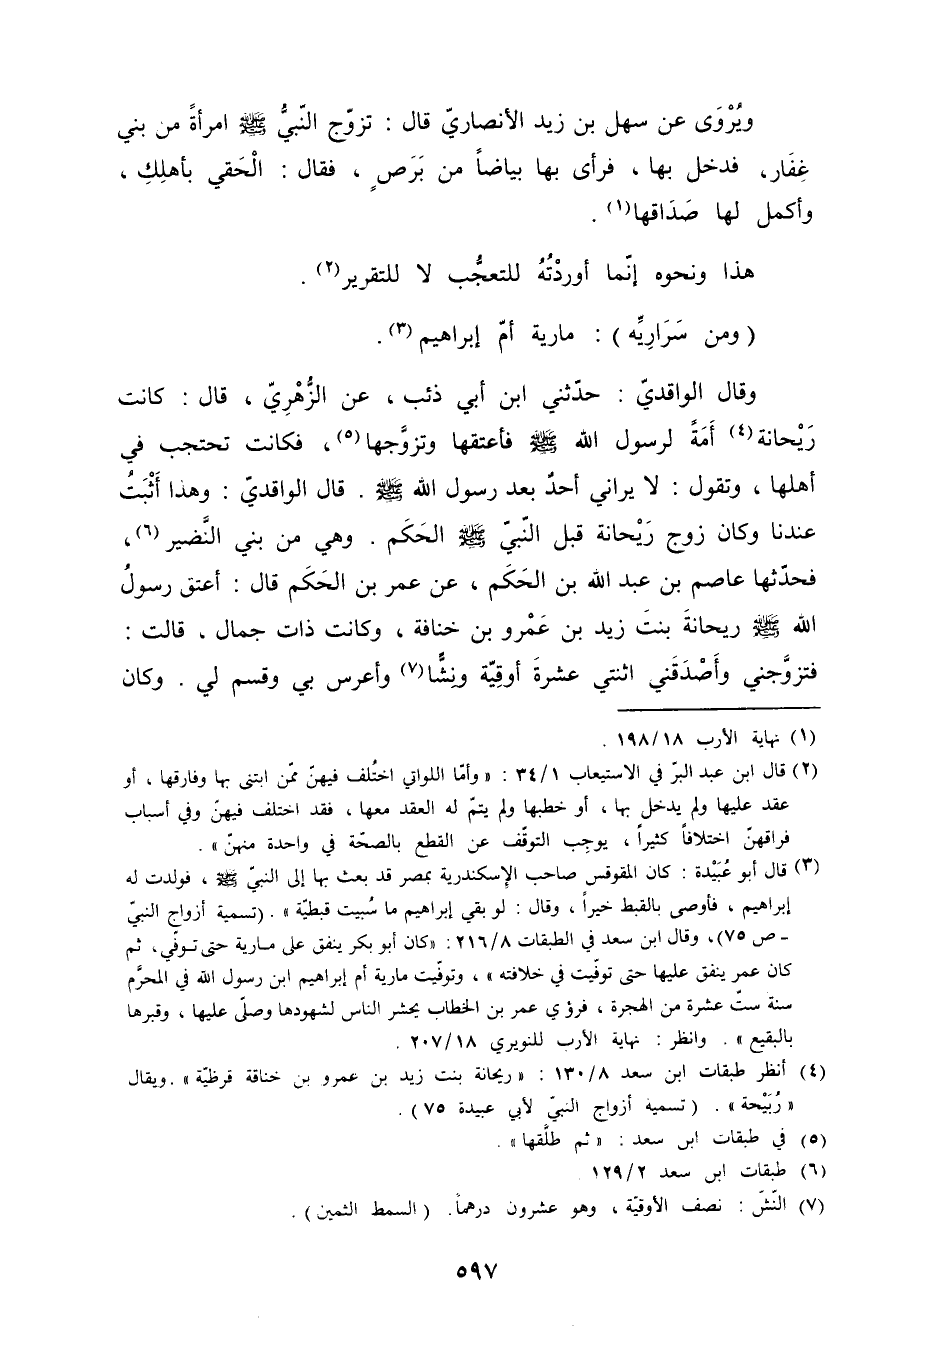 ويُرْوَى عن سهل بن زيد الأنصاريّ قال : تزوّج النّبيُّ ﷺ امرأةً من بني
غِفَار، فدخل بها ، فرأى بها بياضاً من بَرَصٍ ، فقال : الْحَقي بأهلِكِ ،
وأكمل لها صَدَاقها(١) .
هذا ونحوه إنّما أوردْتُهُ للتعجُّب لا للتقرير(٢) .
( ومن سَرَارِيِّه ) : مارية أمّ إبراهيم(٣) .
وقال الواقديّ : حدّثني ابن أبي ذئب ، عن الزُّهْرِيّ ، قال : كانت
رَيْحانة(٤) أَمَةً لرسول الله ﷺ فأعتقها وتزوَّجها(٥) ، فكانت تحتجب في
أهلها ، وتقول : لا يراني أحدٌ بعد رسول الله ﷺ . قال الواقديّ : وهذا أَثْبَتُ
عندنا وكان زوج رَيْحانة قبل النّبيّ ﷺ الحَكَم . وهي من بني النَّضير(٦) ،
فحدّثها عاصم بن عبد الله بن الحَكَم ، عن عمر بن الحَكَم قال : أعتق رسولُ
الله ﷺ ريحانةَ بنتَ زيد بن عَمْرو بن خنافة ، وكانت ذات جمال ، قالت :
فتزوَّجني وأَصْدَقَني اثنتي عشرةَ أوقيّة ونِشًّا(٧) وأعرس بي وقسم لي . وكان
(١) نهاية الأرب ١٩٨/١٨ .
(٢) قال ابن عبد البرّ في الاستيعاب ٣٤/١ : « وأمّا اللواتي اختُلف فيهنّ ممّن ابتنى بها وفارقها ، أو
عقد عليها ولم يدخل بها ، أو خطبها ولم يتمّ له العقد معها ، فقد اختلف فيهنّ وفي أسباب
فراقهنّ اختلافاً كثيراً ، يوجِب التوقّف عن القطع بالصحّة في واحدة منهنّ » .
(٣) قال أبو عُبَيْدة : كان المقوقس صاحب الإسكندرية بمصر قد بعث بها إلى النبيّ ﷺ ، فولدت له
إبراهيم ، فأوصى بالقبط خيراً ، وقال : لو بقي إبراهيم ما سُبيت قبطيّة » . (تسمية أزواج النبيّ
- ص ٧٥)، وقال ابن سعد في الطبقات ٢١٦/٨ : «كان أبو بكر ينفق على مارية حتى توفّي، ثم
كان عمر ينفق عليها حتى توفّيت في خلافته » ، وتوفّيت مارية أم إبراهيم ابن رسول الله في المحرَّم
سنة ستّ عشرة من الهجرة ، فرؤي عمر بن الخطاب يحشر الناس لشهودها وصلّى عليها ، وقبرها
بالبقيع » . وانظر : نهاية الأرب للنويري ٢٠٧/١٨ .
(٤) أنظر طبقات ابن سعد ١٣٠/٨ : « ريحانة بنت زيد بن عمرو بن خناقة قرظيّة » . ويقال
« رُبَيْحة » . ( تسمية أزواج النبيّ لأبي عبيدة ٧٥ ) .
(٥) في طبقات ابن سعد : « ثم طلّقها » .
(٦) طبقات ابن سعد ١٢٩/٢
(٧) النّشّ : نصف الأوقيّة ، وهو عشرون درهماً. ( السمط الثمين ) .
٥٩٧